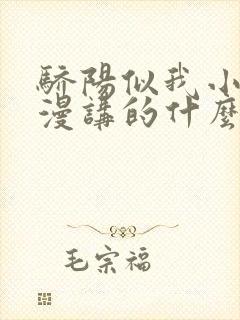 驕陽似我小
漫講的什麼
毛宗福